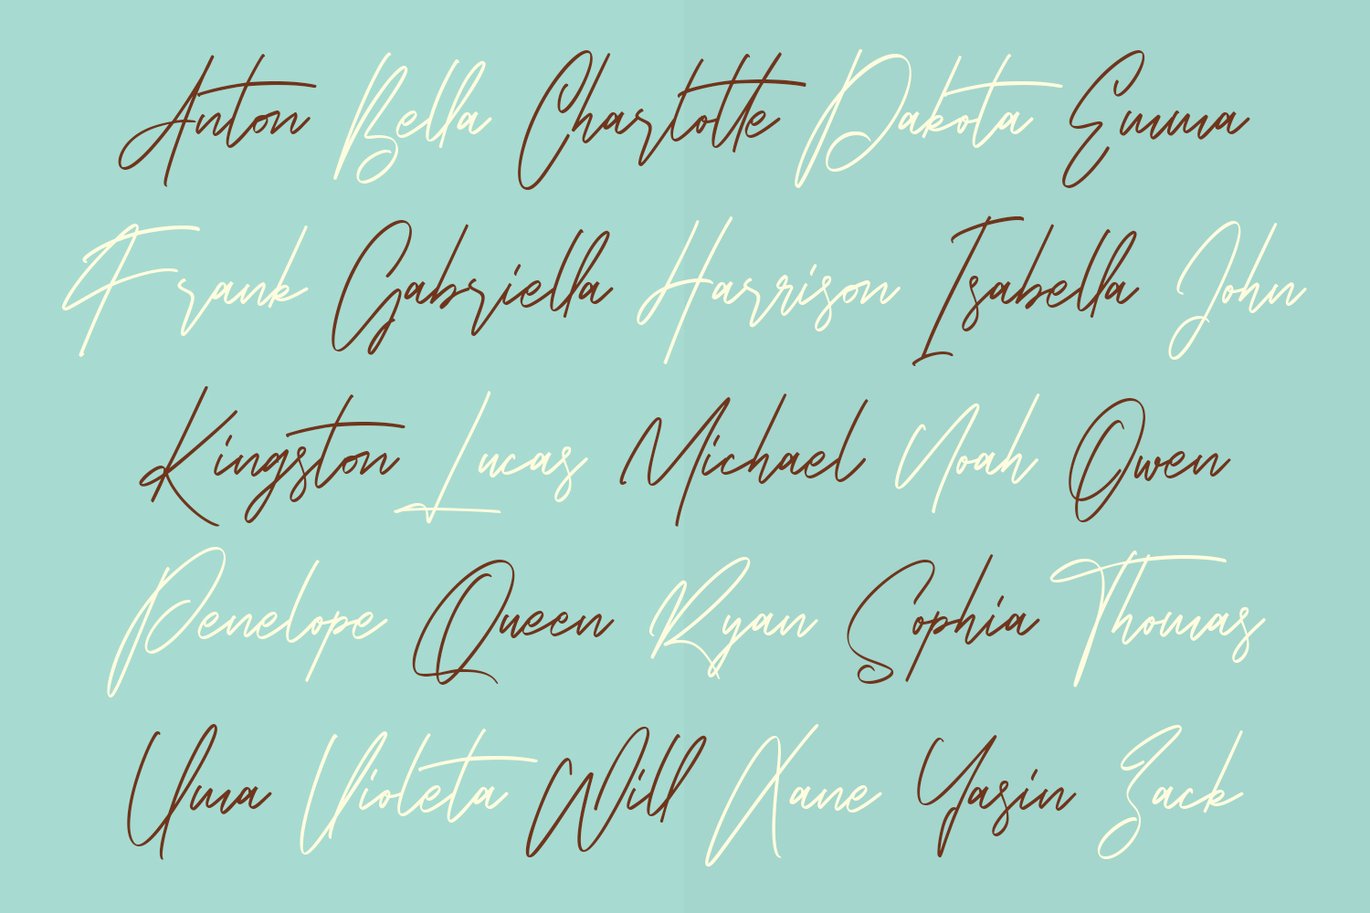 Anton Bella Charlotte Dakota Emma
Frank Gabriella Harrison Isabella John
Kingston Lucas Michael Noah Owen
Penelope Queen Ryan Sophia Thomas
Uma Violeta Will Xane Yasin Zack